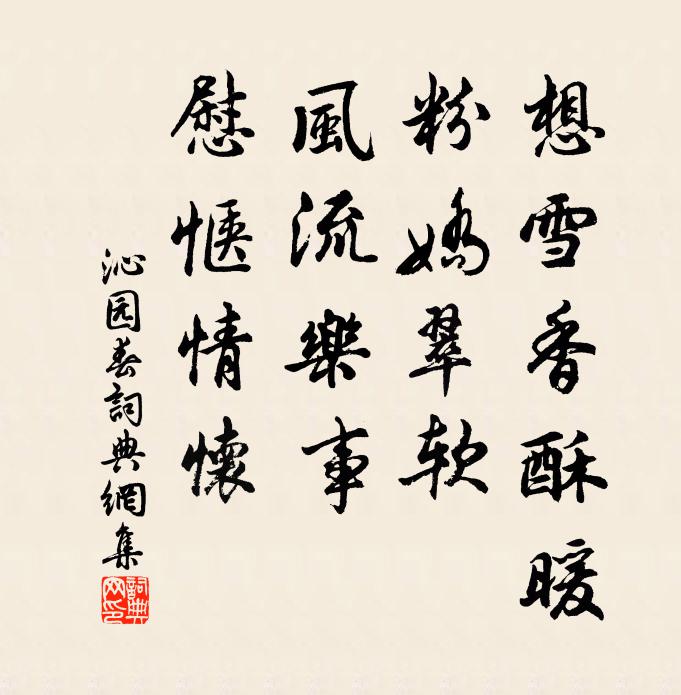 想雪香酥暖
粉嬌翠软
風流樂事
慰惬情懷
沁园春詞典網集
詞典网印